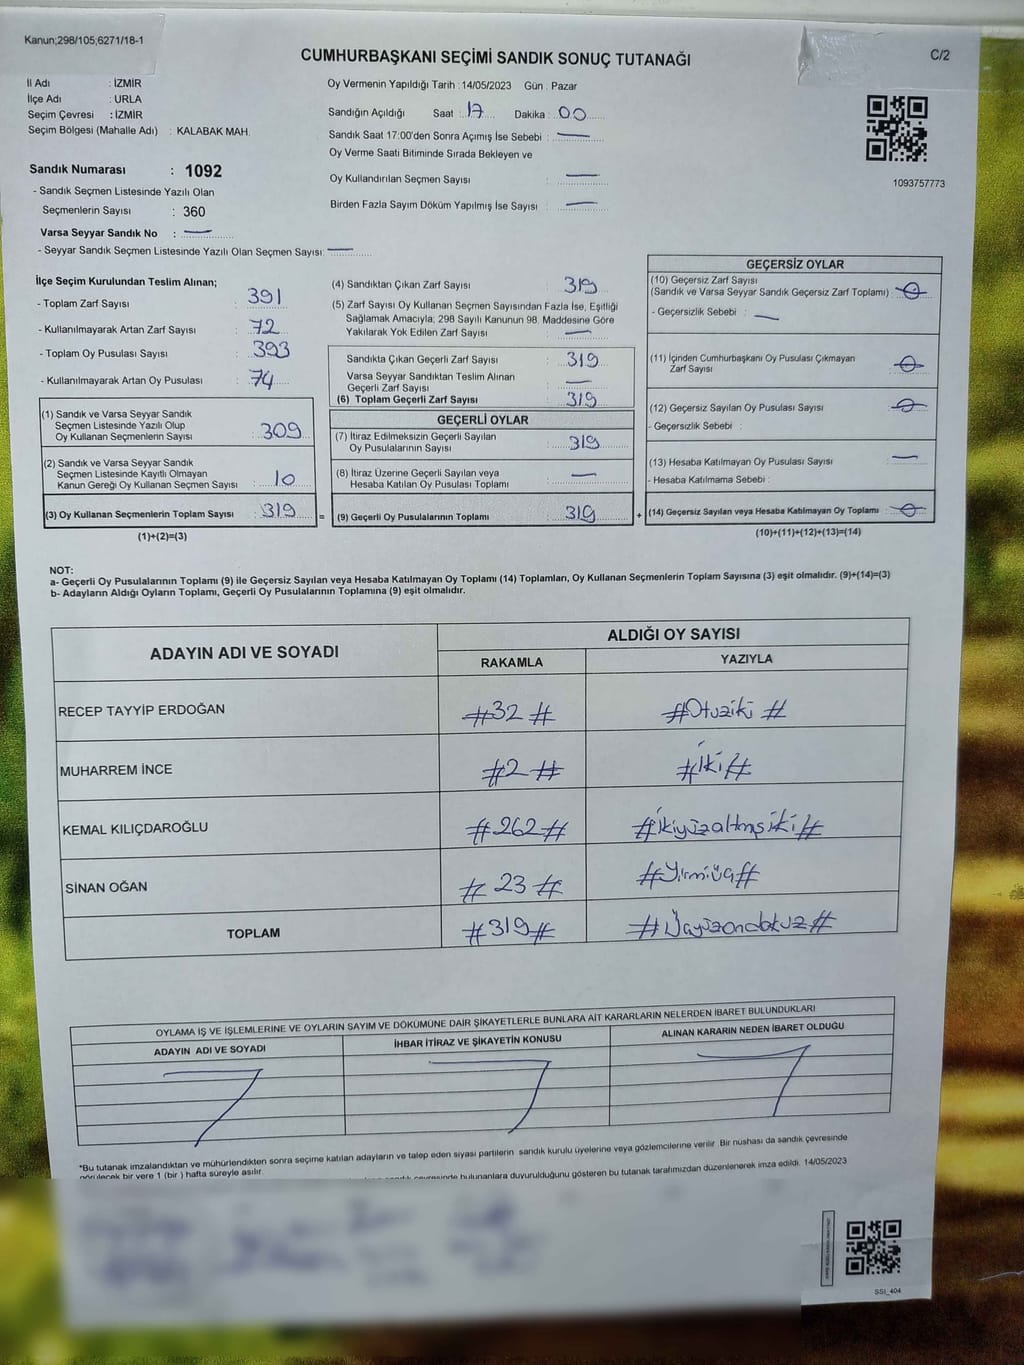 Kanun;298/105;6271/18-1
CUMHURBAŞKANI SEÇİMİ SANDIK SONUÇ TUTANAĞI
C/2
İl Adı : İZMİR
İlçe Adı : URLA
Seçim Çevresi : İZMİR
Seçim Bölgesi (Mahalle Adı) : KALABAK MAH.
Sandık Numarası : 1092
- Sandık Seçmen Listesinde Yazılı Olan
Seçmenlerin Sayısı : 360
Varsa Seyyar Sandık No : —
- Seyyar Sandık Seçmen Listesinde Yazılı Olan Seçmen Sayısı: —
Oy Vermenin Yapıldığı Tarih : 14/05/2023 Gün : Pazar
Sandığın Açıldığı Saat : 17 Dakika : 00
Sandık Saat 17:00'den Sonra Açımış İse Sebebi : —
Oy Verme Saati Bitiminde Sırada Bekleyen ve
Oy Kullandırılan Seçmen Sayısı : —
Birden Fazla Sayım Döküm Yapılmış İse Sayısı : —
1093757773
İlçe Seçim Kurulundan Teslim Alınan;
- Toplam Zarf Sayısı : 391
- Kullanılmayarak Artan Zarf Sayısı : 72
- Toplam Oy Pusulası Sayısı : 393
- Kullanılmayarak Artan Oy Pusulası : 74
(1) Sandık ve Varsa Seyyar Sandık
Seçmen Listesinde Yazılı Olup
Oy Kullanan Seçmenlerin Sayısı : 309
(2) Sandık ve Varsa Seyyar Sandık
Seçmen Listesinde Kayıtlı Olmayan
Kanun Gereği Oy Kullanan Seçmen Sayısı : 10
(3) Oy Kullanan Seçmenlerin Toplam Sayısı : 319 =
(1)+(2)=(3)
(4) Sandıktan Çıkan Zarf Sayısı : 319
(5) Zarf Sayısı Oy Kullanan Seçmen Sayısından Fazla İse, Eşitliği
Sağlamak Amacıyla; 298 Sayılı Kanunun 98. Maddesine Göre
Yakılarak Yok Edilen Zarf Sayısı : —
Sandıkta Çıkan Geçerli Zarf Sayısı : 319
Varsa Seyyar Sandıktan Teslim Alınan
Geçerli Zarf Sayısı : —
(6) Toplam Geçerli Zarf Sayısı : 319
GEÇERLİ OYLAR
(7) İtiraz Edilmeksizin Geçerli Sayılan
Oy Pusulalarının Sayısı : 319
(8) İtiraz Üzerine Geçerli Sayılan veya
Hesaba Katılan Oy Pusulası Toplamı : —
(9) Geçerli Oy Pusulalarının Toplamı : 319 +
GEÇERSİZ OYLAR
(10) Geçersiz Zarf Sayısı
(Sandık ve Varsa Seyyar Sandık Geçersiz Zarf Toplamı) : 0
- Geçersizlik Sebebi : —
(11) İçinden Cumhurbaşkanı Oy Pusulası Çıkmayan
Zarf Sayısı : 0
(12) Geçersiz Sayılan Oy Pusulası Sayısı : 0
- Geçersizlik Sebebi :
(13) Hesaba Katılmayan Oy Pusulası Sayısı : —
- Hesaba Katılmama Sebebi :
(14) Geçersiz Sayılan veya Hesaba Katılmayan Oy Toplamı : 0
(10)+(11)+(12)+(13)=(14)
NOT:
a- Geçerli Oy Pusulalarının Toplamı (9) ile Geçersiz Sayılan veya Hesaba Katılmayan Oy Toplamı (14) Toplamları, Oy Kullanan Seçmenlerin Toplam Sayısına (3) eşit olmalıdır. (9)+(14)=(3)
b- Adayların Aldığı Oyların Toplamı, Geçerli Oy Pusulalarının Toplamına (9) eşit olmalıdır.
ADAYIN ADI VE SOYADI ALDIĞI OY SAYISI
RAKAMLA YAZIYLA
RECEP TAYYİP ERDOĞAN #32# #Otuziki#
MUHARREM İNCE #2# #İki#
KEMAL KILIÇDAROĞLU #262# #İkiyüzaltmışiki#
SİNAN OĞAN #23# #Yirmiüç#
TOPLAM #319# #Üçyüzondokuz#
OYLAMA İŞ VE İŞLEMLERİNE VE OYLARIN SAYIM VE DÖKÜMÜNE DAİR ŞİKAYETLERLE BUNLARA AİT KARARLARIN NELERDEN İBARET BULUNDUKLARI
ADAYIN ADI VE SOYADI İHBAR İTİRAZ VE ŞİKAYETİN KONUSU ALINAN KARARIN NEDEN İBARET OLDUĞU
*Bu tutanak imzalandıktan ve mühürlendikten sonra seçime katılan adayların ve talep eden siyasi partilerin sandık kurulu üyelerine veya gözlemcilerine verilir. Bir nüshası da sandık çevresinde
görülecek bir yere 1 (bir ) hafta süreyle asılır.
sandık çevresinde bulunanlara duyurulduğunu gösteren bu tutanak tarafımızdan düzenlenerek imza edildi. 14/05/2023
SSI_404